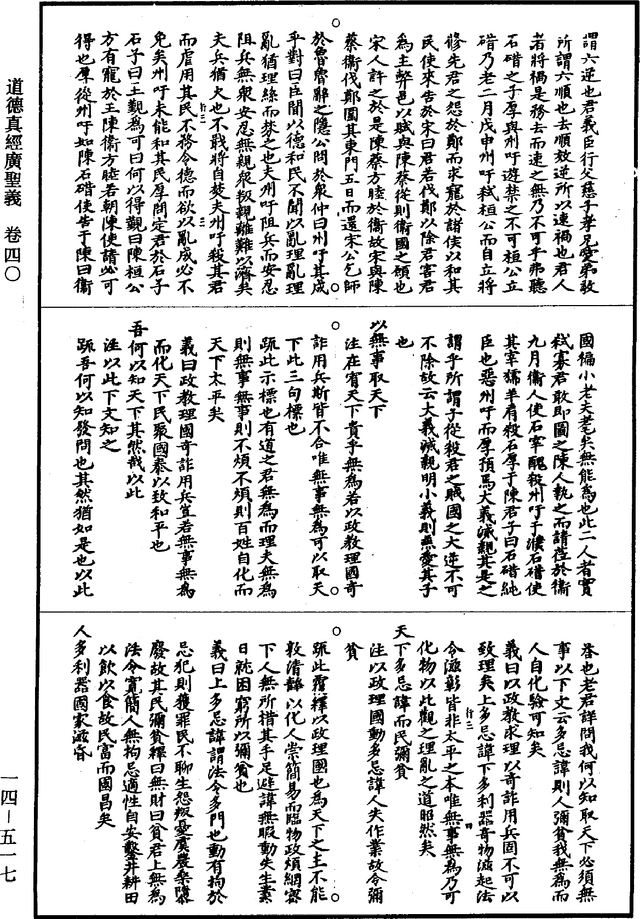 道德真經廣聖義　卷四〇
一四—五一七
謂六逆也君義臣行父慈子孝兄愛弟敬
所謂六順也去順效逆所以速禍也君人
者將禍是務去而速之無乃不可乎弗聽
石碏之子厚與州吁遊禁之不可桓公立
碏乃老二月戊申州吁弒桓公而自立將
修先君之怨於鄭而求寵於諸侯以和其
民使來告於宋曰君若伐鄭以除君害君
為主弊邑以賦與陳蔡從則衛國之願也
宋人許之於是陳蔡方睦於衛故宋與陳
蔡衛伐鄭圍其東門五日而還宋公乞師
於魯魯辭之隱公問於衆仲曰州吁其成
乎對曰臣聞以德和民不聞以亂理亂理
亂猶理絲而棼之也夫州吁阻兵而安忍
阻兵無衆安忍無親衆叛親離難以濟矣
夫兵猶火也不戢將自焚夫州吁殺其君
而虐用其民不務令德而欲以亂成必不
免矣州吁未能和其民厚問定君於石子
石子曰王觀為可曰何以得觀曰陳桓公
方有寵於王陳衛方睦若朝陳使請必可
得也厚從州吁如陳石碏使告于陳曰衛
國褊小老夫耄矣無能為也此二人者實
弒寡君敢即圖之陳人執之而請莅於衛
九月衛人使右宰醜殺州吁于濮石碏使
其宰獳羊肩殺石厚于陳君子曰石碏純
臣也惡州吁而厚預焉大義滅親其是之
謂乎所謂子從殺君之賊國之大逆不可
不除故云大義滅親明小義則無愛其子
也
以無事取天下
注在宥天下貴乎無為若以政教理國奇
詐用兵斯皆不合唯無事無為可以取天
下此三句標也
疏此示標也有道之君無為而理夫無為
則無事無事則不煩不煩則百姓自化而
天下太平矣
義曰政教理國奇詐用兵豈若無事無為
而化天下民聚國泰以致和平也
吾何以知天下其然哉以此
注以此下文知之
疏吾何以知發問也其然猶如是也以此
答也老君詳問我何以知取天下必須無
事以下文云多忌諱則人彌貧我無為而
人自化驗可知矣
義曰以政教求理以奇詐用兵固不可以
致理矣上多忌諱下多利器奇物滋起法
令滋彰皆非太平之本唯無事無為乃可
化物以此觀之理亂之道昭然矣
天下多忌諱而民彌貧
注以政理國動多忌諱人失作業故令彌
貧
疏此覆釋以政理國也為天下之主不能
敦清靜以化人崇簡易而臨物政煩網密
下人無所措其手足避諱無暇動失生業
日就困窮所以彌貧也
義曰上多忌諱謂法令多門也動有拘於
忌犯則獲罪民不聊生怨叛憂虞農桑隳
廢故其民彌貧釋曰無財曰貧君上無為
法令寬簡人無拘忌適性自安鑿井耕田
以飲以食故民富而國昌矣
人多利器國家滋昏